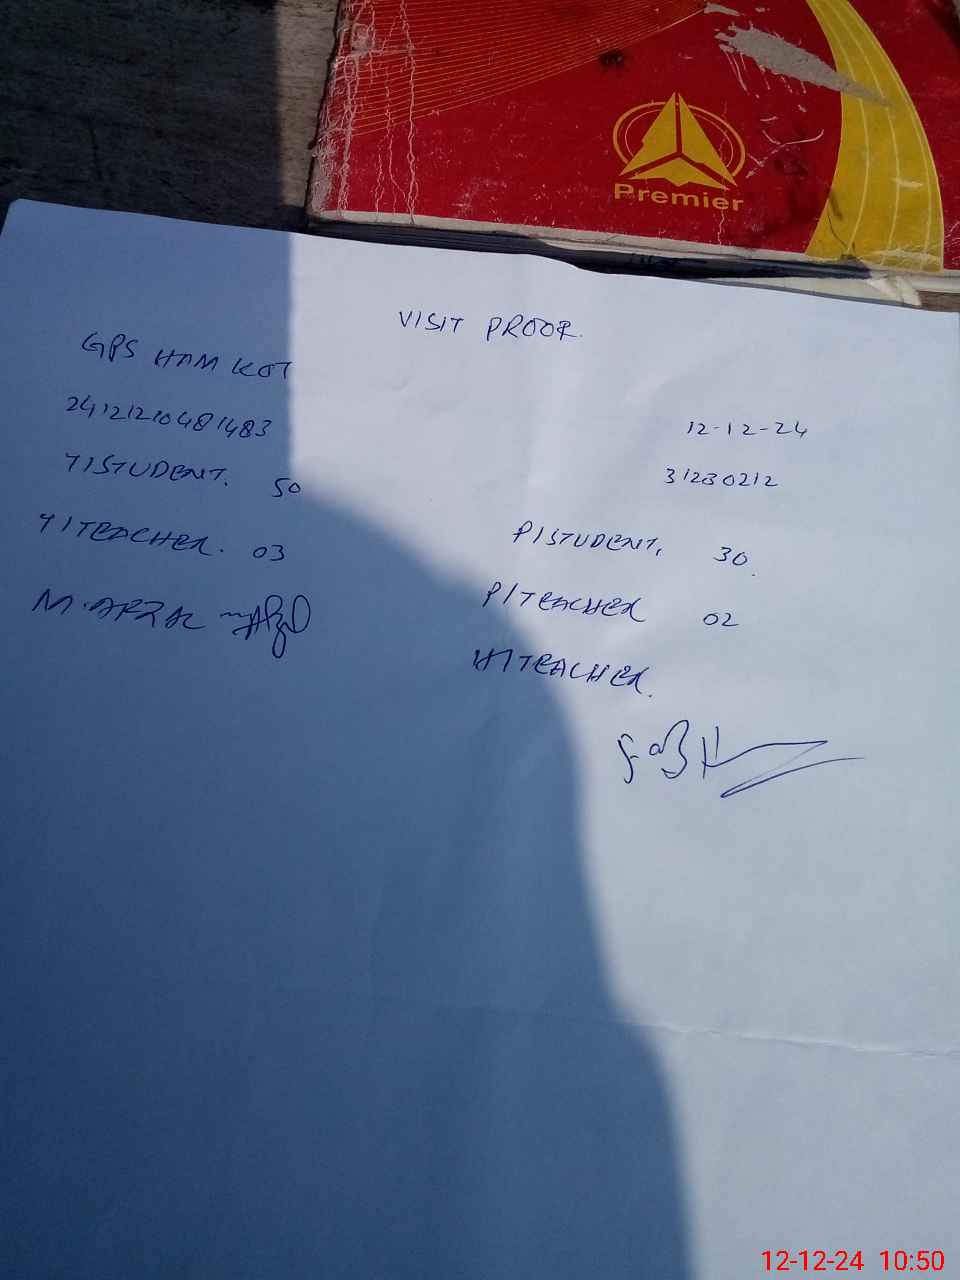 Premier
VISIT PROOF.
GPS HAM KOT
2412121048 1483
12-12-24
31230212
T/STUDENT. 50
P/STUDENT. 30.
T/TEACHER. 03
P/TEACHER 02
M. AFZAL
H/TEACHER.
12-12-24 10:50